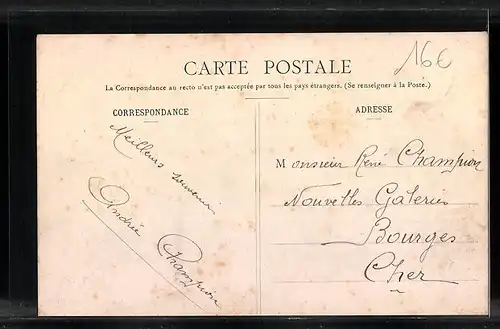 16€
CARTE POSTALE
La Correspondance au recto n'est pas acceptée par tous les pays étrangers. (Se renseigner à la Poste.)
CORRESPONDANCE
Meilleurs souvenirs
Andrée
Champion
ADRESSE
Monsieur René Champion
Nouvelles Galeries
Bourges
Cher